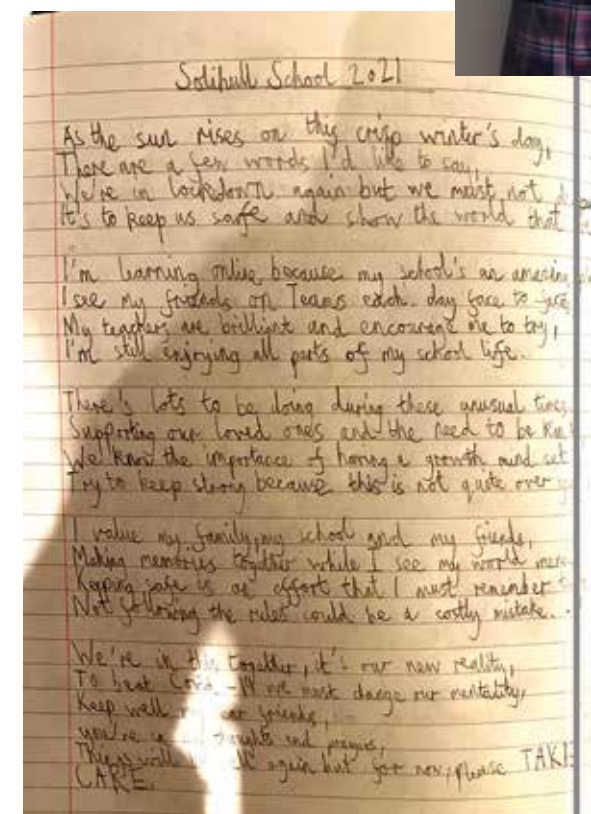 Solihull School 2021
As the sun rises on this crisp winter's day,
There are a few words I'd like to say,
We're in lockdown again but we must not
It's to keep us safe and show the world that
I'm learning online because my school's an amazing
I see my friends on Teams each day face to face
My teachers are brilliant and encourage me to try,
I'm still enjoying all parts of my school life.
There's lots to be doing during these unusual times
Supporting our loved ones and the need to be
We know the importance of having a growth mind set
Try to keep strong because this is not quite over
I value my family, my school and my friends,
Making memories together while I see my world
Keeping safe is an effort that I must remember
Not following the rules could be a costly mistake.
We're in this together, it's our new reality,
To beat Covid-19 we must change our mentality,
Keep well my dear friends,
you're in thoughts and prayers,
Things will be well again but for now, please TAKE
CARE.